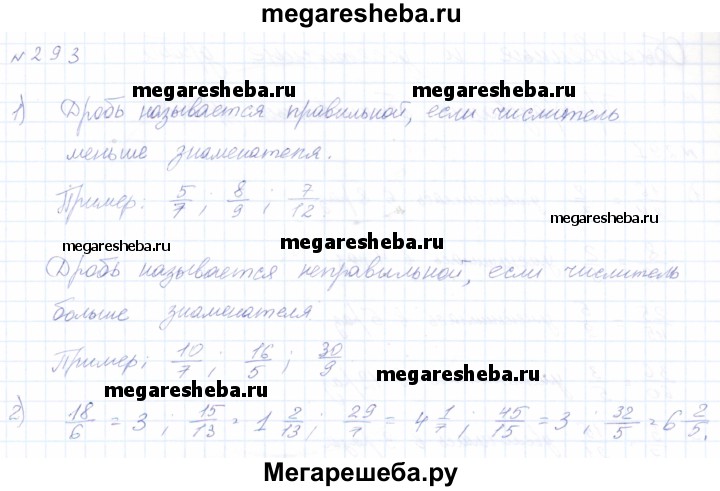 megaresheba.ru
№293
megaresheba.ru
megaresheba.ru
1) Дробь называется правильной, если числитель
меньше знаменателя.
Пример: 5/7; 8/9; 7/12
megaresheba.ru
megaresheba.ru
megaresheba.ru
Дробь называется неправильной, если числитель
больше знаменателя
Пример: 10/7; 16/5; 30/9
megaresheba.ru
megaresheba.ru
2) 18/6 = 3; 15/13 = 1 2/13; 29/7 = 4 1/7; 45/15 = 3; 32/5 = 6 2/5.
Мегарешеба.ру